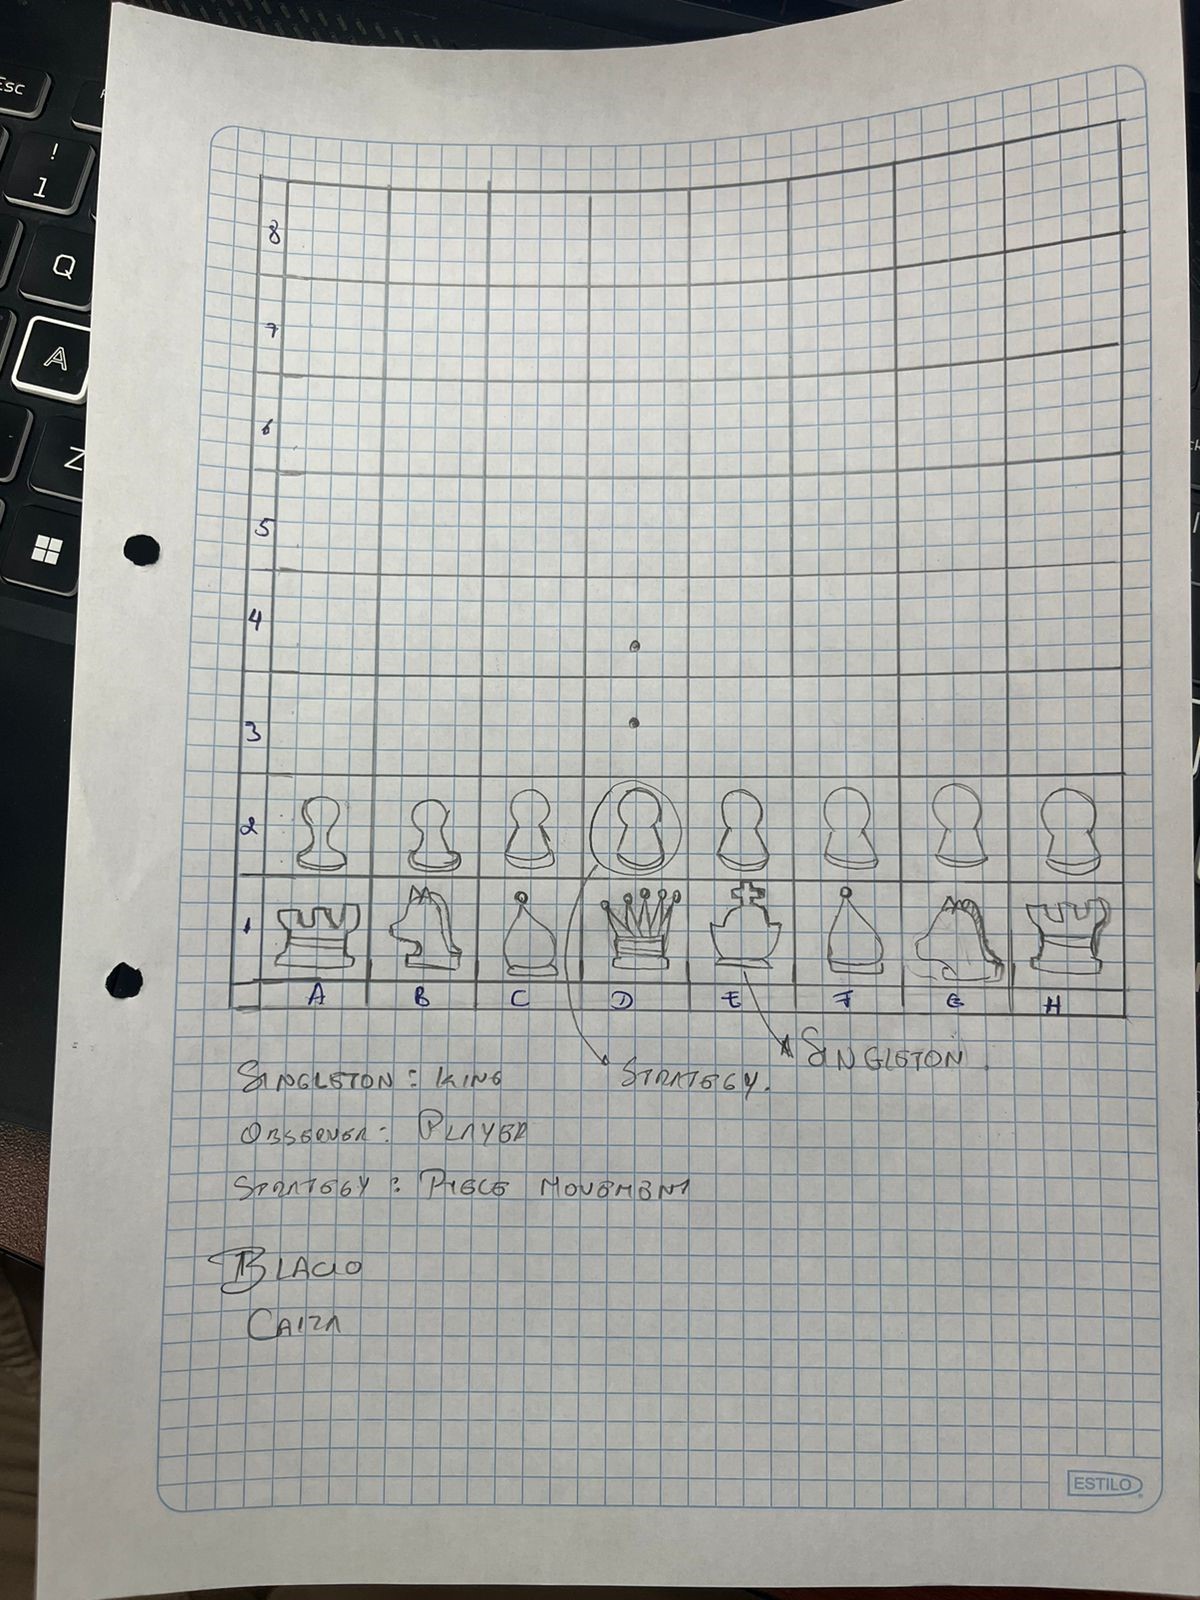 Esc
!
1
Q
A
Z
8
7
6
5
4
3
2
1
A B C D E F G H
SINGLETON.
SINGLETON: KING
STRATEGY.
OBSERVER: PLAYER
STRATEGY: PIECE MOVEMENT
BLACIO
CAIZA
ESTILO